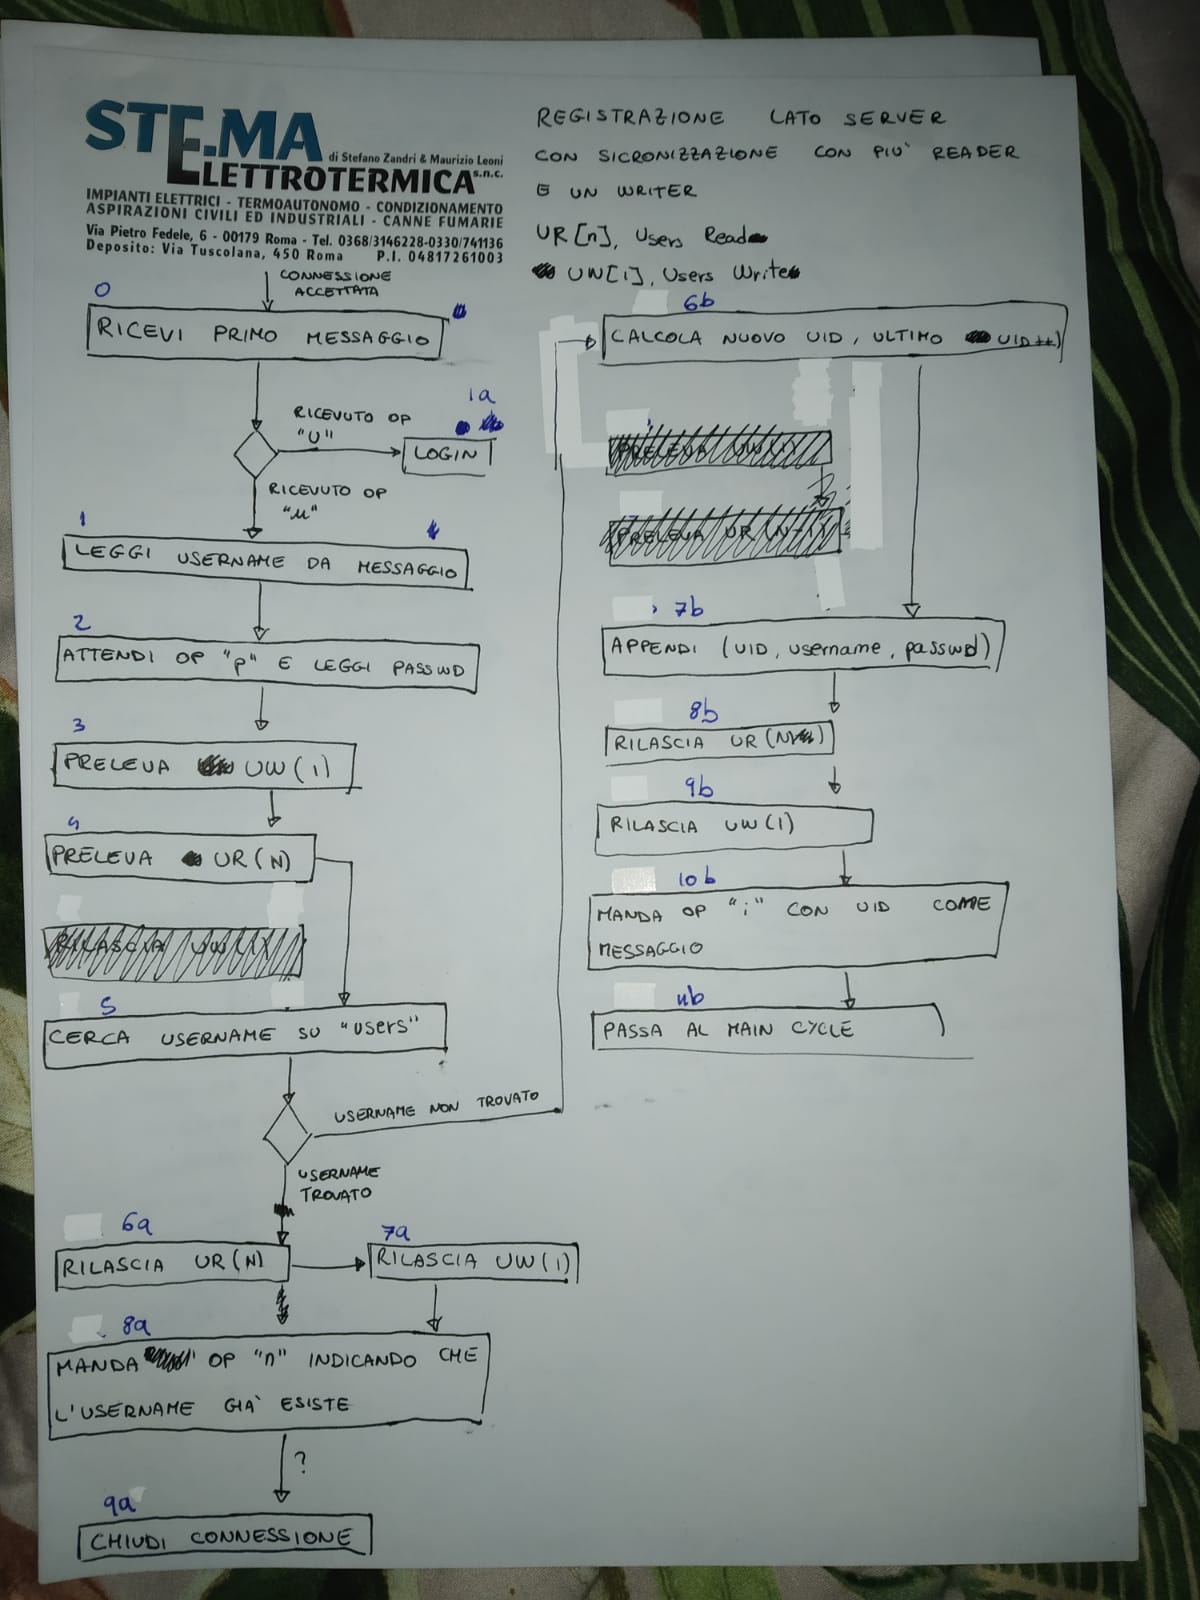 STE.MA
ELETTROTERMICA s.n.c.
di Stefano Zandri & Maurizio Leoni
IMPIANTI ELETTRICI - TERMOAUTONOMO - CONDIZIONAMENTO
ASPIRAZIONI CIVILI ED INDUSTRIALI - CANNE FUMARIE
Via Pietro Fedele, 6 - 00179 Roma - Tel. 0368/3146228-0330/741136
Deposito: Via Tuscolana, 450 Roma P.I. 04817261003
REGISTRAZIONE LATO SERVER
CON SICRONIZZAZIONE CON PIU' READER
E UN WRITER
UR[n], Users Read
UW[1], Users Write
CONNESSIONE
ACCETTATA
0
RICEVI PRIMO MESSAGGIO
RICEVUTO OP
"U"
1a
LOGIN
RICEVUTO OP
"u"
1
LEGGI USERNAME DA MESSAGGIO
2
ATTENDI OP "p" E LEGGI PASSWD
3
PRELEVA UW(1)
4
PRELEVA UR(N)
RILASCIA UW(1)
5
CERCA USERNAME SU "users"
USERNAME NON TROVATO
USERNAME
TROVATO
6a
RILASCIA UR(N)
7a
RILASCIA UW(1)
8a
MANDA OP "n" INDICANDO CHE
L'USERNAME GIA' ESISTE
?
9a
CHIUDI CONNESSIONE
6b
CALCOLA NUOVO UID, ULTIMO UID++)
PRELEVA UW(1)
PRELEVA UR(N-1)
7b
APPENDI (UID, username, passwd)
8b
RILASCIA UR(N)
9b
RILASCIA UW(1)
10b
MANDA OP "i" CON UID COME
MESSAGGIO
11b
PASSA AL MAIN CYCLE